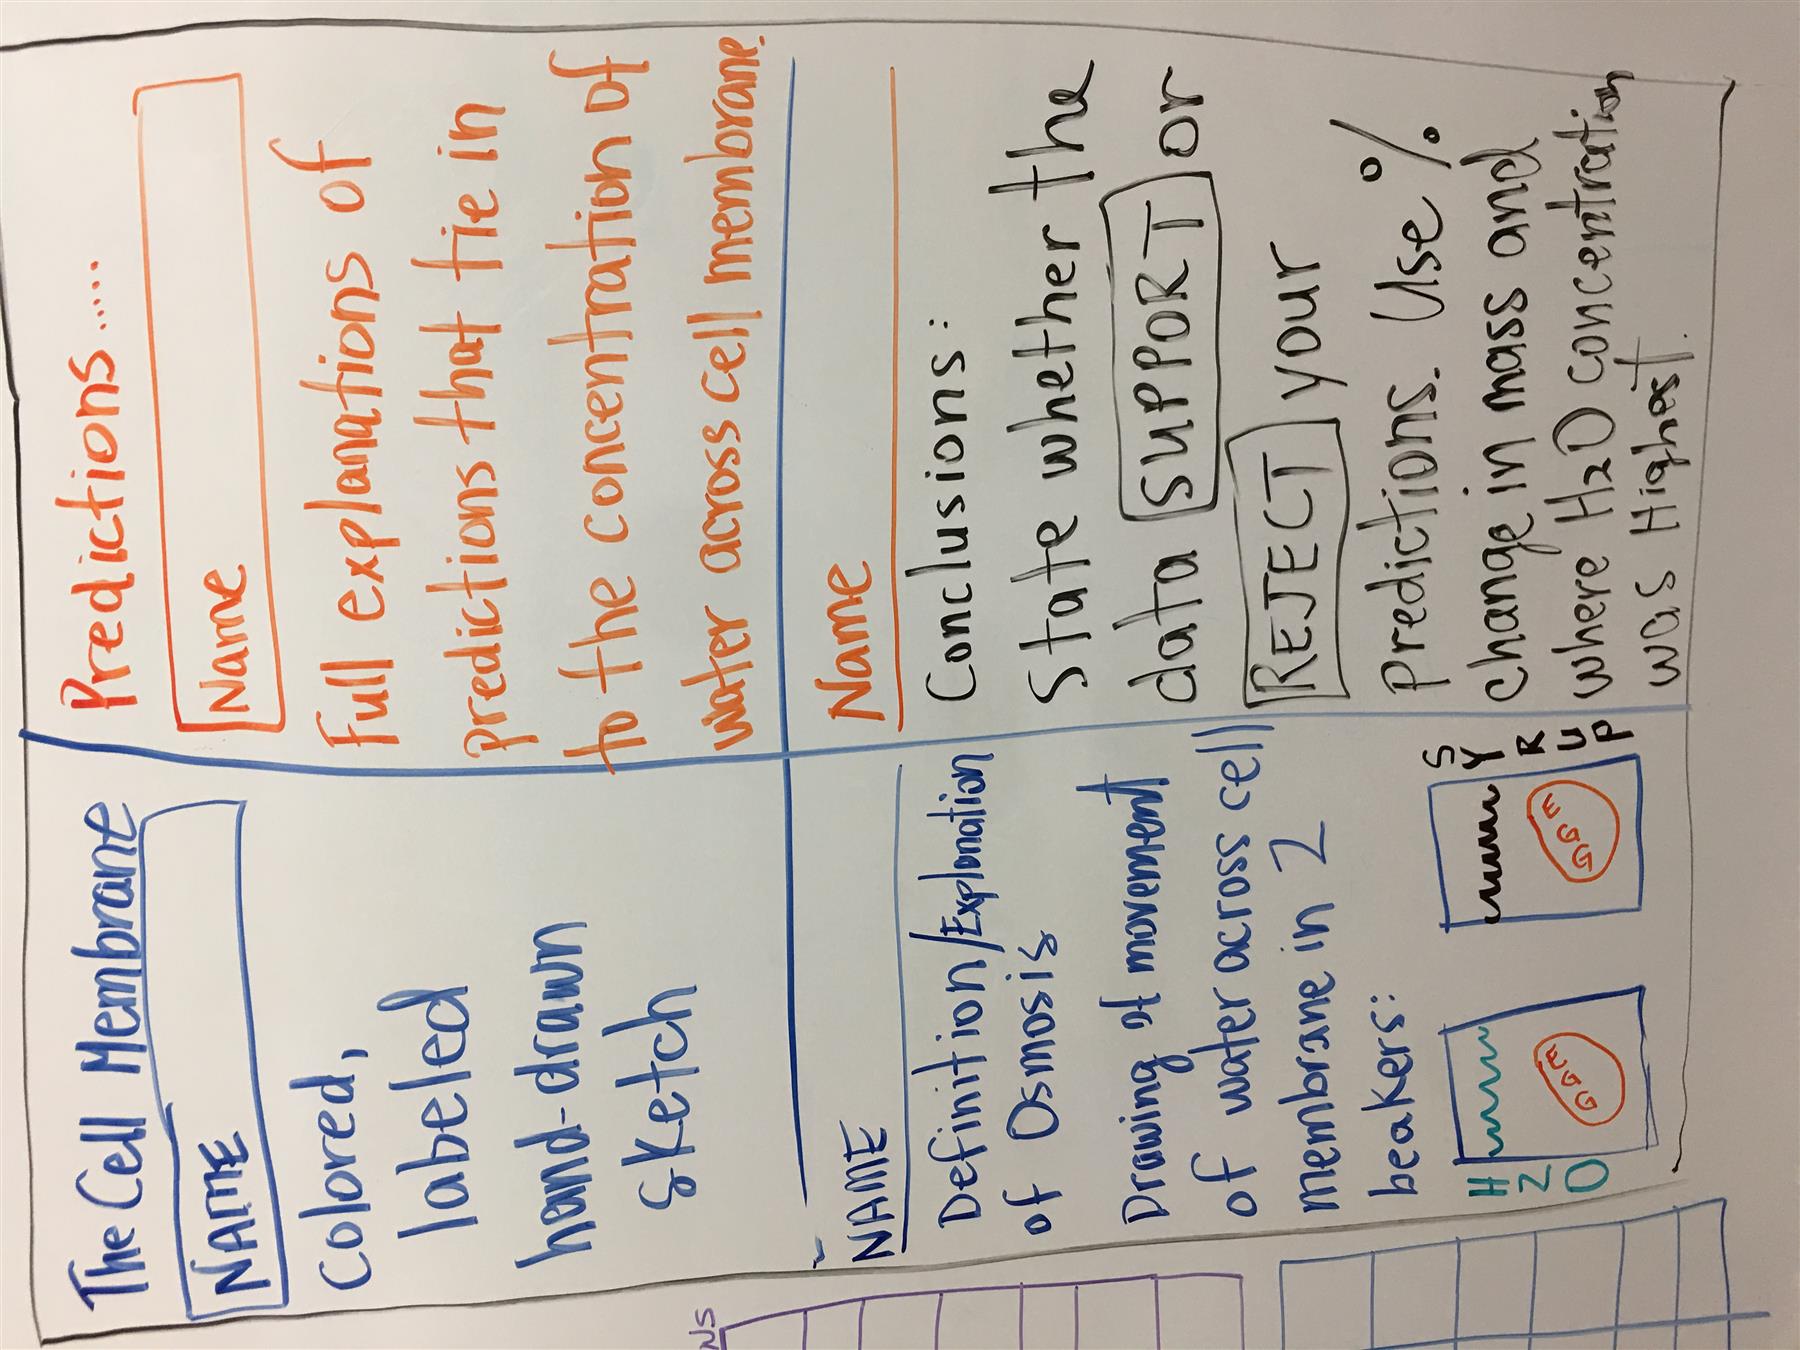 The Cell Membrane
NAME
Colored,
labeled
hand-drawn
sketch
Predictions.....
Name
Full explanations of
predictions that tie in
to the concentration of
water across cell membrane.
NAME
Definition/Explanation
of Osmosis
Drawing of movement
of water across cell
membrane in 2
beakers:
H2O
EGG
SYRUP
EGG
Name
Conclusions:
State whether the
data SUPPORT or
REJECT your
Predictions. Use %
change in mass and
where H2O concentration
was Highest.
NS